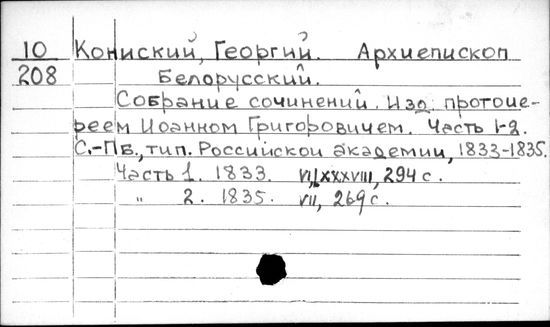 10 Кониский, Георгий. Архиепископ
208 Белорусский.
Собрание сочинений. Изд. протоие-
реем Иоанном Григоровичем. Часть 1-2.
С.-Пб., тип. Российской академии, 1833-1835.
Часть 1. 1833. VI, LXXXVIII, 294 с.
" 2. 1835. VII, 269 с.